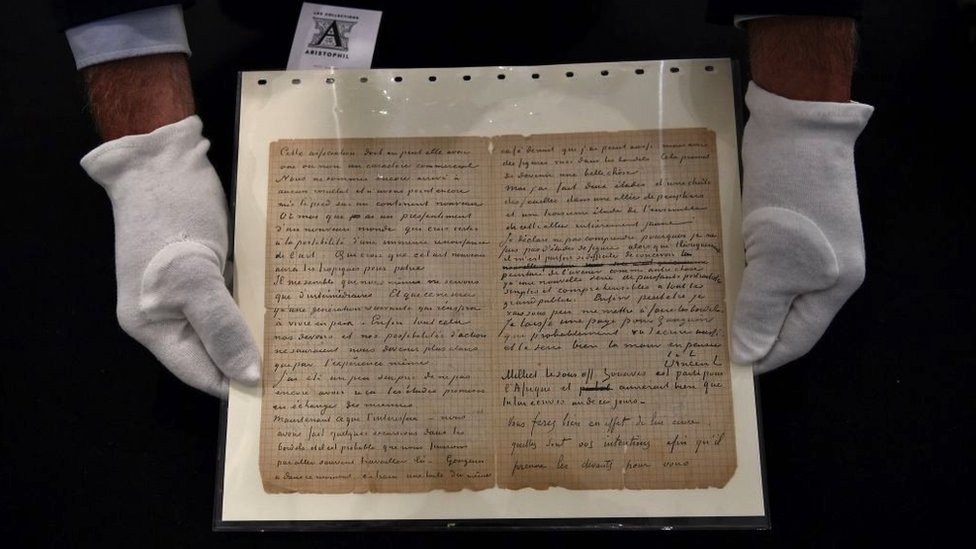 LES COLLECTIONS
A
ARISTOPHIL
Cette association dont on peut elle avoir
oui ou non un caractère commercial
Nous ne sommes encore arrivé à
aucun résultat et n'avons point encore
mis le pied sur un continent nouveau
Or moi que ai un pressentiment
d'un nouveau monde qui crois certes
à la possibilité d'une immense renaissance
de l'art. Qui crois que cet art nouveau
aura les tropiques pour patrie
Il me semble que nous mêmes ne servons
que d'intermédiaires. Et que ce ne sera
qu'une génération suivante qui réussira
à vivre en paix. Enfin tout cela
nos devoirs et nos possibilités d'action
ne sauraient nous devenir plus clairs
que par l'expérience même.
J'ai été un peu surpris de ne pas
encore avoir reçu les études promises
en échange des miennes
Maintenant ce que t'intéressera - nous
avons fait quelques excursions dans les
bordels et il est probable que nous finirons
par aller souvent travailler là. Gauguin
a dans ce moment en train une toile du même
café de nuit que j'ai peint aussi mais avec
des figures vues dans les bordels. Cela promet
de devenir une belle chose
Moi j'ai fait deux études d'une chute
des feuilles dans une allée de peupliers
et une troisième étude de l'ensemble
de cette allée entièrement jaune
Je déclare ne pas comprendre pourquoi je ne
fais pas d'études de figure alors que théoriquement
il m'est parfois si difficile de concevoir la
peinture de l'avenir comme autre chose
qu'une nouvelle série de puissants portraitistes
simples et compréhensibles à tout le
grand public. Enfin peut être je
vais sous peu me mettre à faire les bordels
Je laisse une page pour Gauguin
que probablement va t'écrire aussi
et te serre bien la main en pensée
t. à t.
Vincent
Milliet le sous off. Zouaves est parti pour
l'Afrique et aimerait bien que
tu lui écrives un de ces jours.
Vous ferez bien en effet de lui écrire
quelles sont vos intentions afin qu'il
prenne les devants pour vous